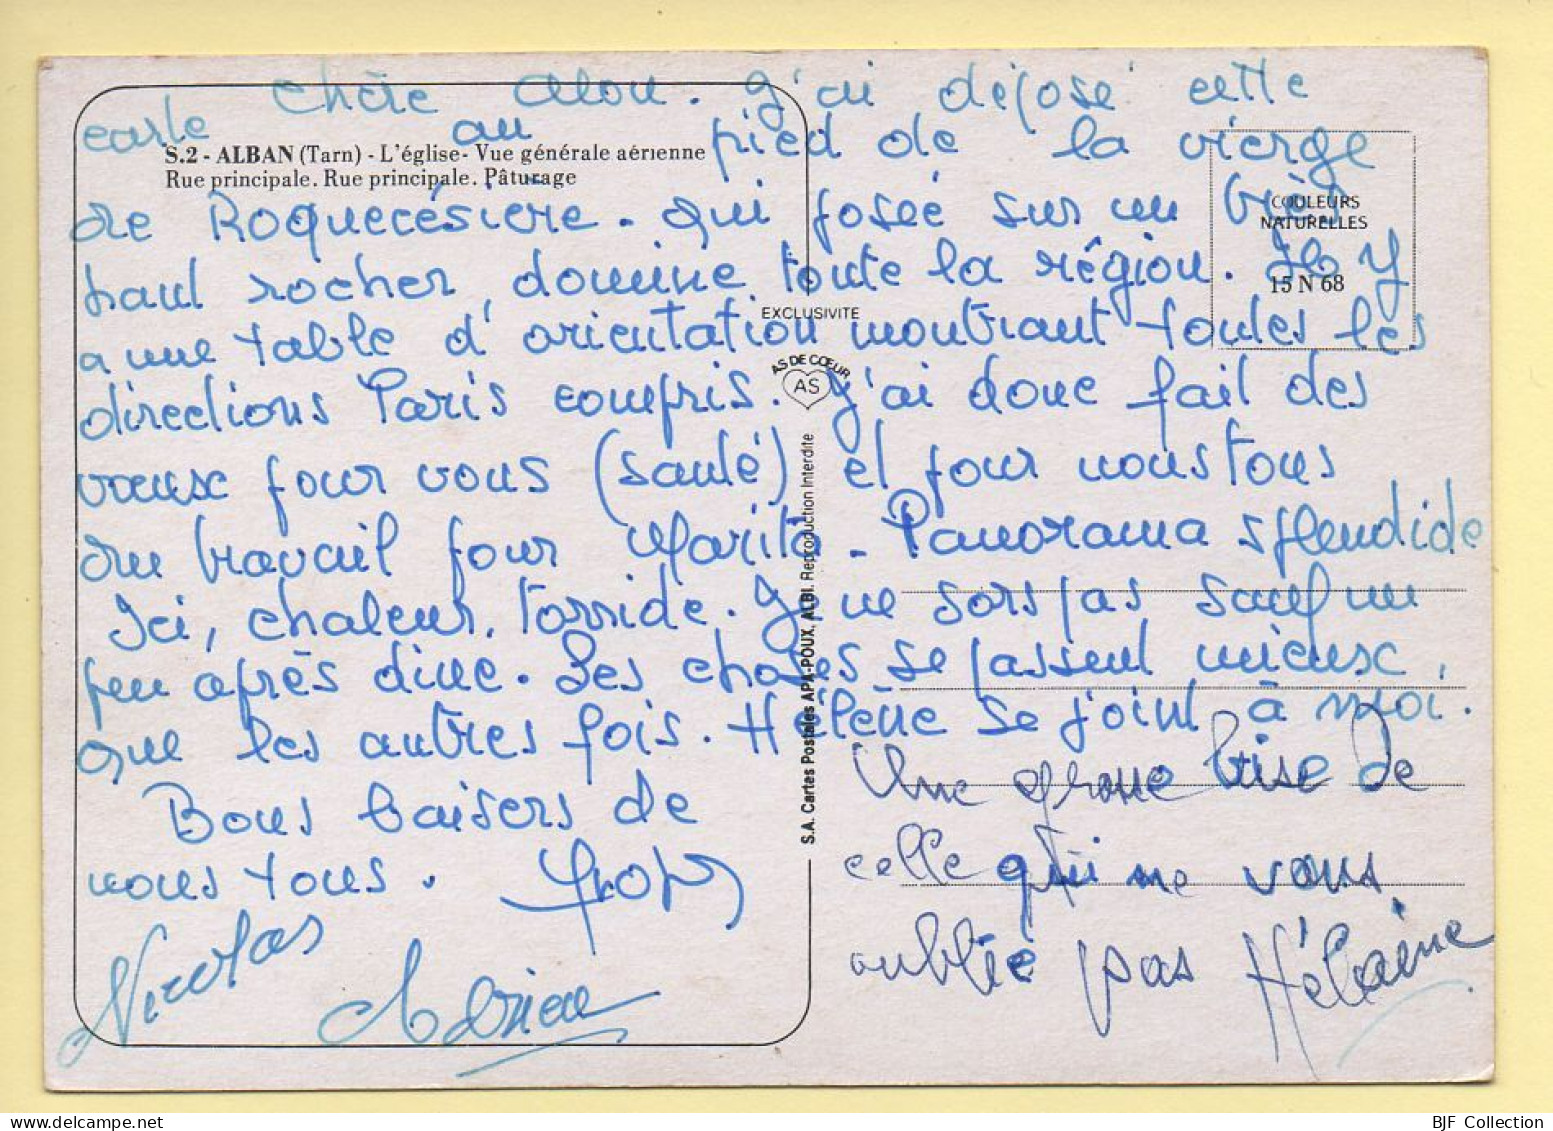 Chère Alou. J'ai déposé cette
carte au pied de la vierge
S.2 - ALBAN (Tarn) - L'église - Vue générale aérienne
Rue principale. Rue principale. Pâturage
COULEURS
NATURELLES
15 N 68
de Roquecésière. qui posée sur un très
haut rocher, domine toute la région. Il y
EXCLUSIVITE
a une table d'orientation montrant toutes les
AS DE CŒUR
AS
directions Paris compris. J'ai donc fait des
vœux pour vous (santé) et pour nous tous
du travail pour Marité. Panorama splendide
Ici, chaleur, torride. Je ne sors pas sauf un
peu après dîne. Les choses se passent mieux.
que les autres fois. Hélène se joint à moi.
Bons baisers de
nous tous.
Nicolas
Adrien
Une grosse bise de
celle qui ne vous
oublie pas Hélène
S.A. Cartes Postales APA-POUX, ALBI. Reproduction Interdite
BJF Collection